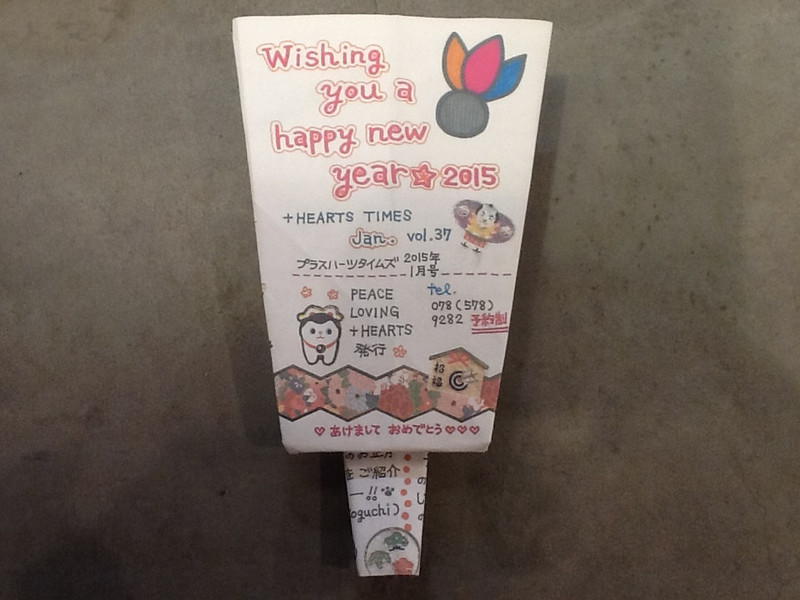 Wishing
you a
happy new
year☆2015
+HEARTS TIMES
Jan. vol.37
プラスハーツタイムズ 2015年
1月号
PEACE
LOVING
+HEARTS
発行
tel.
078(578)
9282 予約制
招
福
♡あけまして おめでとう♡♡♡
のお正月
をご紹介
ー!!
oguchi)
の
し
の